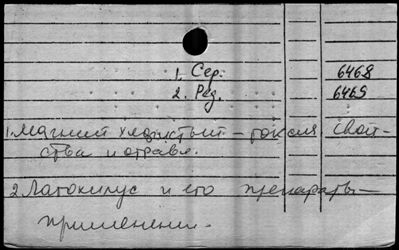 1. Сер. 6468
2. Рез. 6469
1. Магний хлористый – свой-
ства и отравл.
2. и его препараты –
применение.